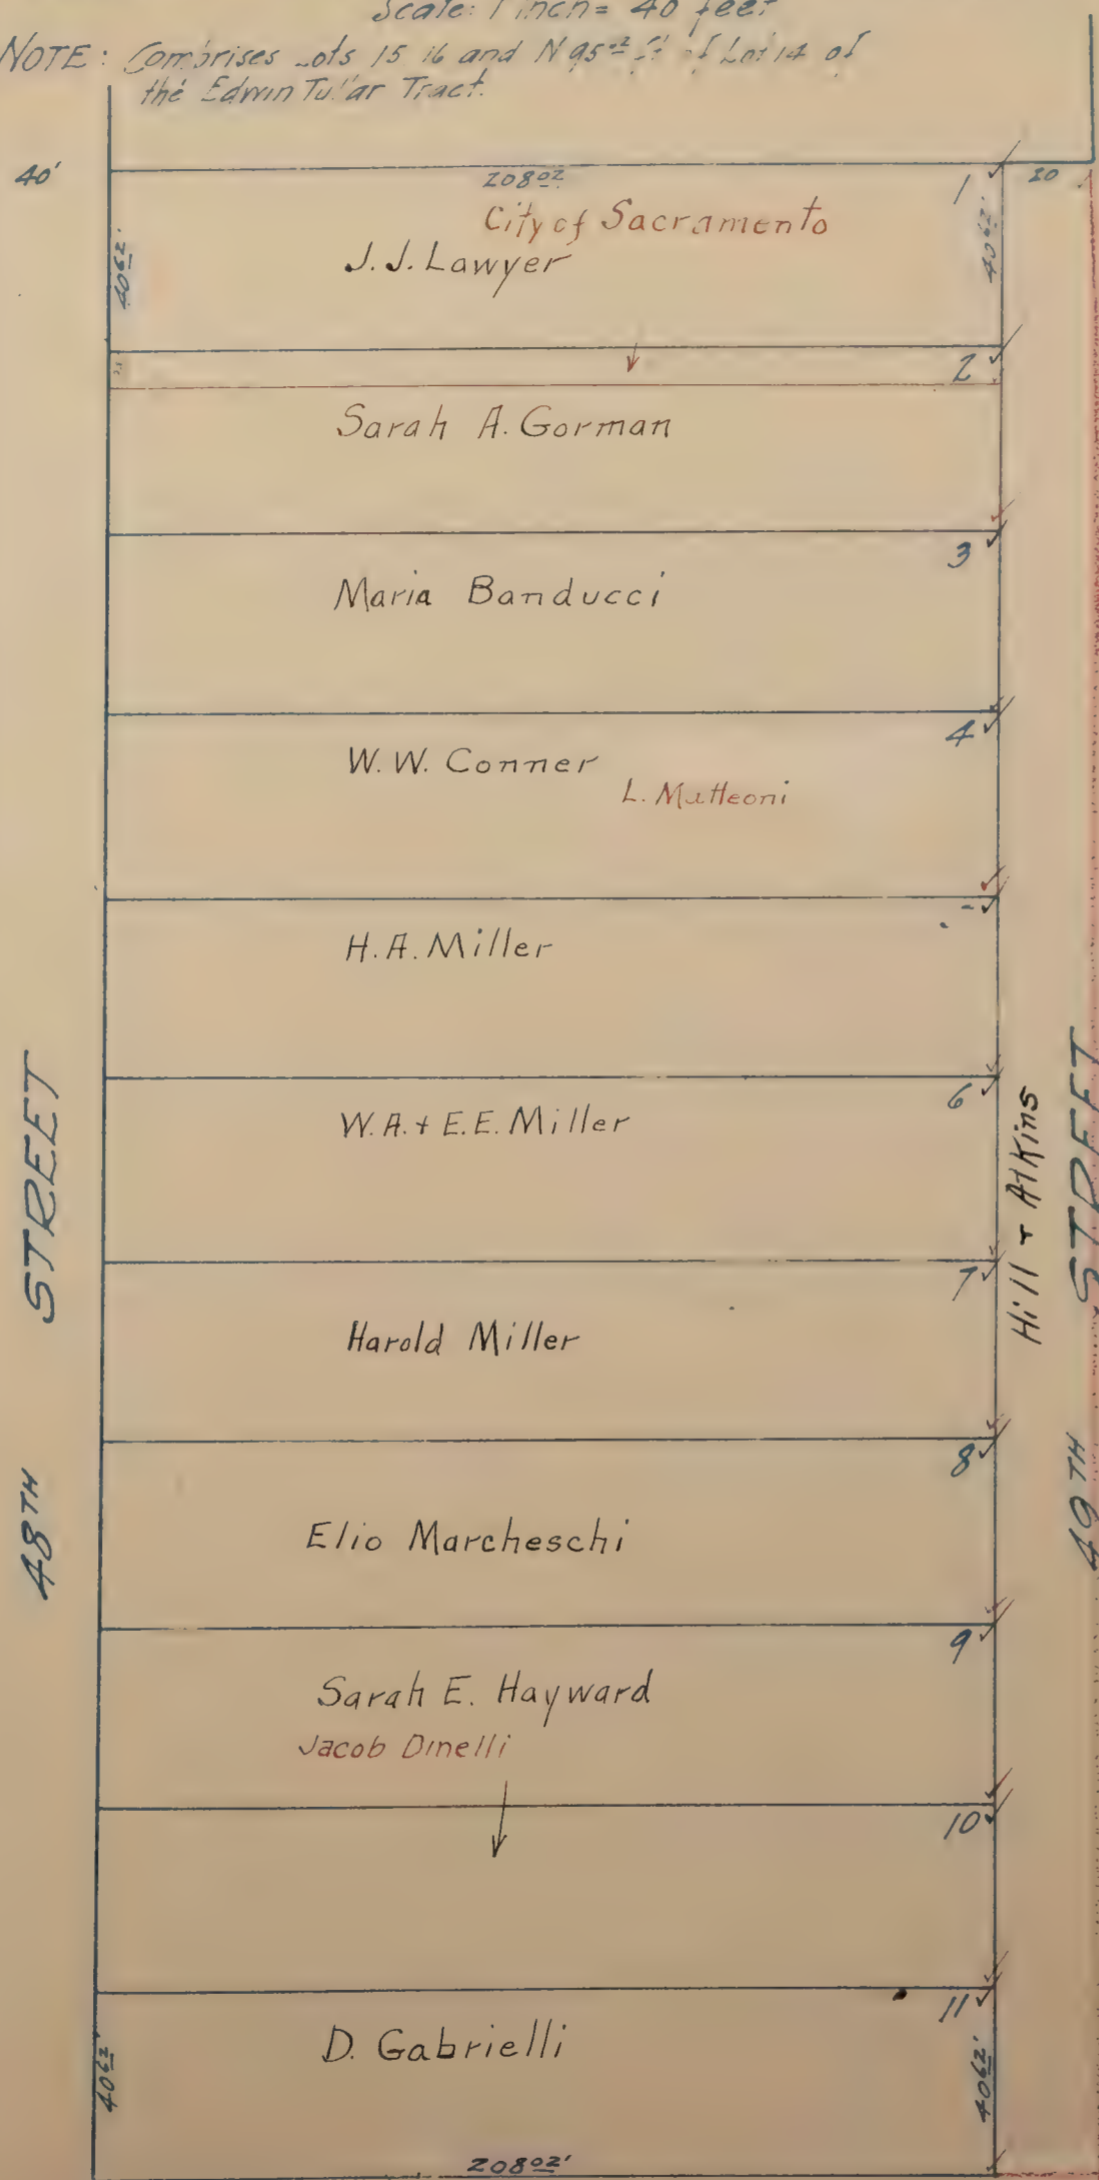 Scale: 1 inch = 40 feet
NOTE: Comprises Lots 15 16 and N 95 of Lot 14 of
the Edwin Tract.
40'
208 02
1
20
City of Sacramento
J. J. Lawyer
40 62'
40 62'
2
Sarah A. Gorman
3
Maria Banducci
4
W. W. Conner
L. Matteoni
H. A. Miller
6
W. A. + E. E. Miller
7
Harold Miller
8
Elio Marcheschi
9
Sarah E. Hayward
Jacob Dinelli
10
11
D. Gabrielli
40 62'
40 62'
208 02'
48TH STREET
Hill + Atkins
49TH STREET